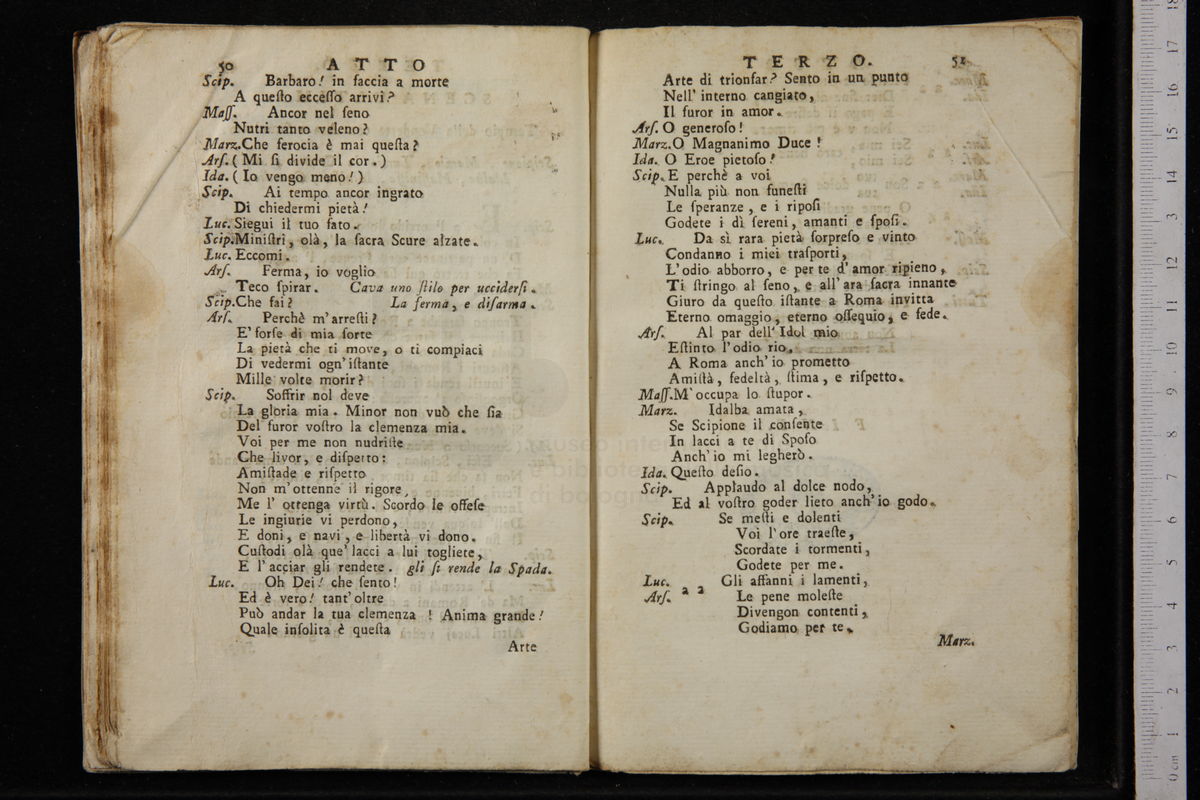 50 ATTO
Scip. Barbaro! in faccia a morte
A queſto ecceſſo arrivi?
Maſſ. Ancor nel ſeno
Nutri tanto veleno?
Marz.Che ferocia è mai queſta?
Arſ. ( Mi ſi divide il cor. )
Ida. ( Io vengo meno! )
Scip. Ai tempo ancor ingrato
Di chiedermi pietà!
Luc. Siegui il tuo fato.
Scip.Miniſtri, olà, la ſacra Scure alzate.
Luc. Eccomi.
Arſ. Ferma, io voglio
Teco ſpirar. Cava uno ſtilo per ucciderſi.
Scip.Che fai? La ferma, e diſarma.
Arſ. Perchè m'arreſti?
E' forſe di mia ſorte
La pietà che ti move, o ti compiaci
Di vedermi ogn'iſtante
Mille volte morir?
Scip. Soffrir nol deve
La gloria mia. Minor non vuò che ſia
Del furor voſtro la clemenza mia.
Voi per me non nudriſte
Che livor, e diſpetto:
Amiſtade e riſpetto
Non m'ottenne il rigore,
Me l' ottenga virtù. Scordo le offeſe
Le ingiurie vi perdono,
E doni, e navi, e libertà vi dono.
Cuſtodi olà que' lacci a lui togliete,
E l'acciar gli rendete. gli ſi rende la Spada.
Luc. Oh Dei! che ſento!
Ed è vero! tant'oltre
Può andar la tua clemenza ! Anima grande!
Quale inſolita è queſta
Arte
TERZO. 51
Arte di trionfar? Sento in un punto
Nell' interno cangiato,
Il furor in amor.
Arſ. O generoſo!
Marz.O Magnanimo Duce!
Ida. O Eroe pietoſo!
Scip. E perchè a voi
Nulla più non funeſti
Le ſperanze, e i ripoſi
Godete i dì ſereni, amanti e ſpoſi.
Luc. Da sì rara pietà ſorpreſo e vinto
Condanno i miei traſporti,
L'odio abborro, e per te d'amor ripieno,
Ti ſtringo al ſeno, e all'ara ſacra innante
Giuro da queſto iſtante a Roma invitta
Eterno omaggio, eterno oſſequio, e fede.
Arſ. Al par dell' Idol mio
Eſtinto l'odio rio,
A Roma anch'io prometto
Amiſtà, fedeltà, ſtima, e riſpetto.
Maſſ.M'occupa lo ſtupor.
Marz. Idalba amata,
Se Scipione il conſente
In lacci a te di Spoſo
Anch'io mi legherò.
Ida. Queſto deſio.
Scip. Applaudo al dolce nodo,
Ed al voſtro goder lieto anch'io godo.
Scip. Se meſti e dolenti
Voi l'ore traeſte,
Scordate i tormenti,
Godete per me.
Luc. Gli affanni i lamenti,
Arſ. a 2 Le pene moleſte
Divengon contenti,
Godiamo per te.
Marz.